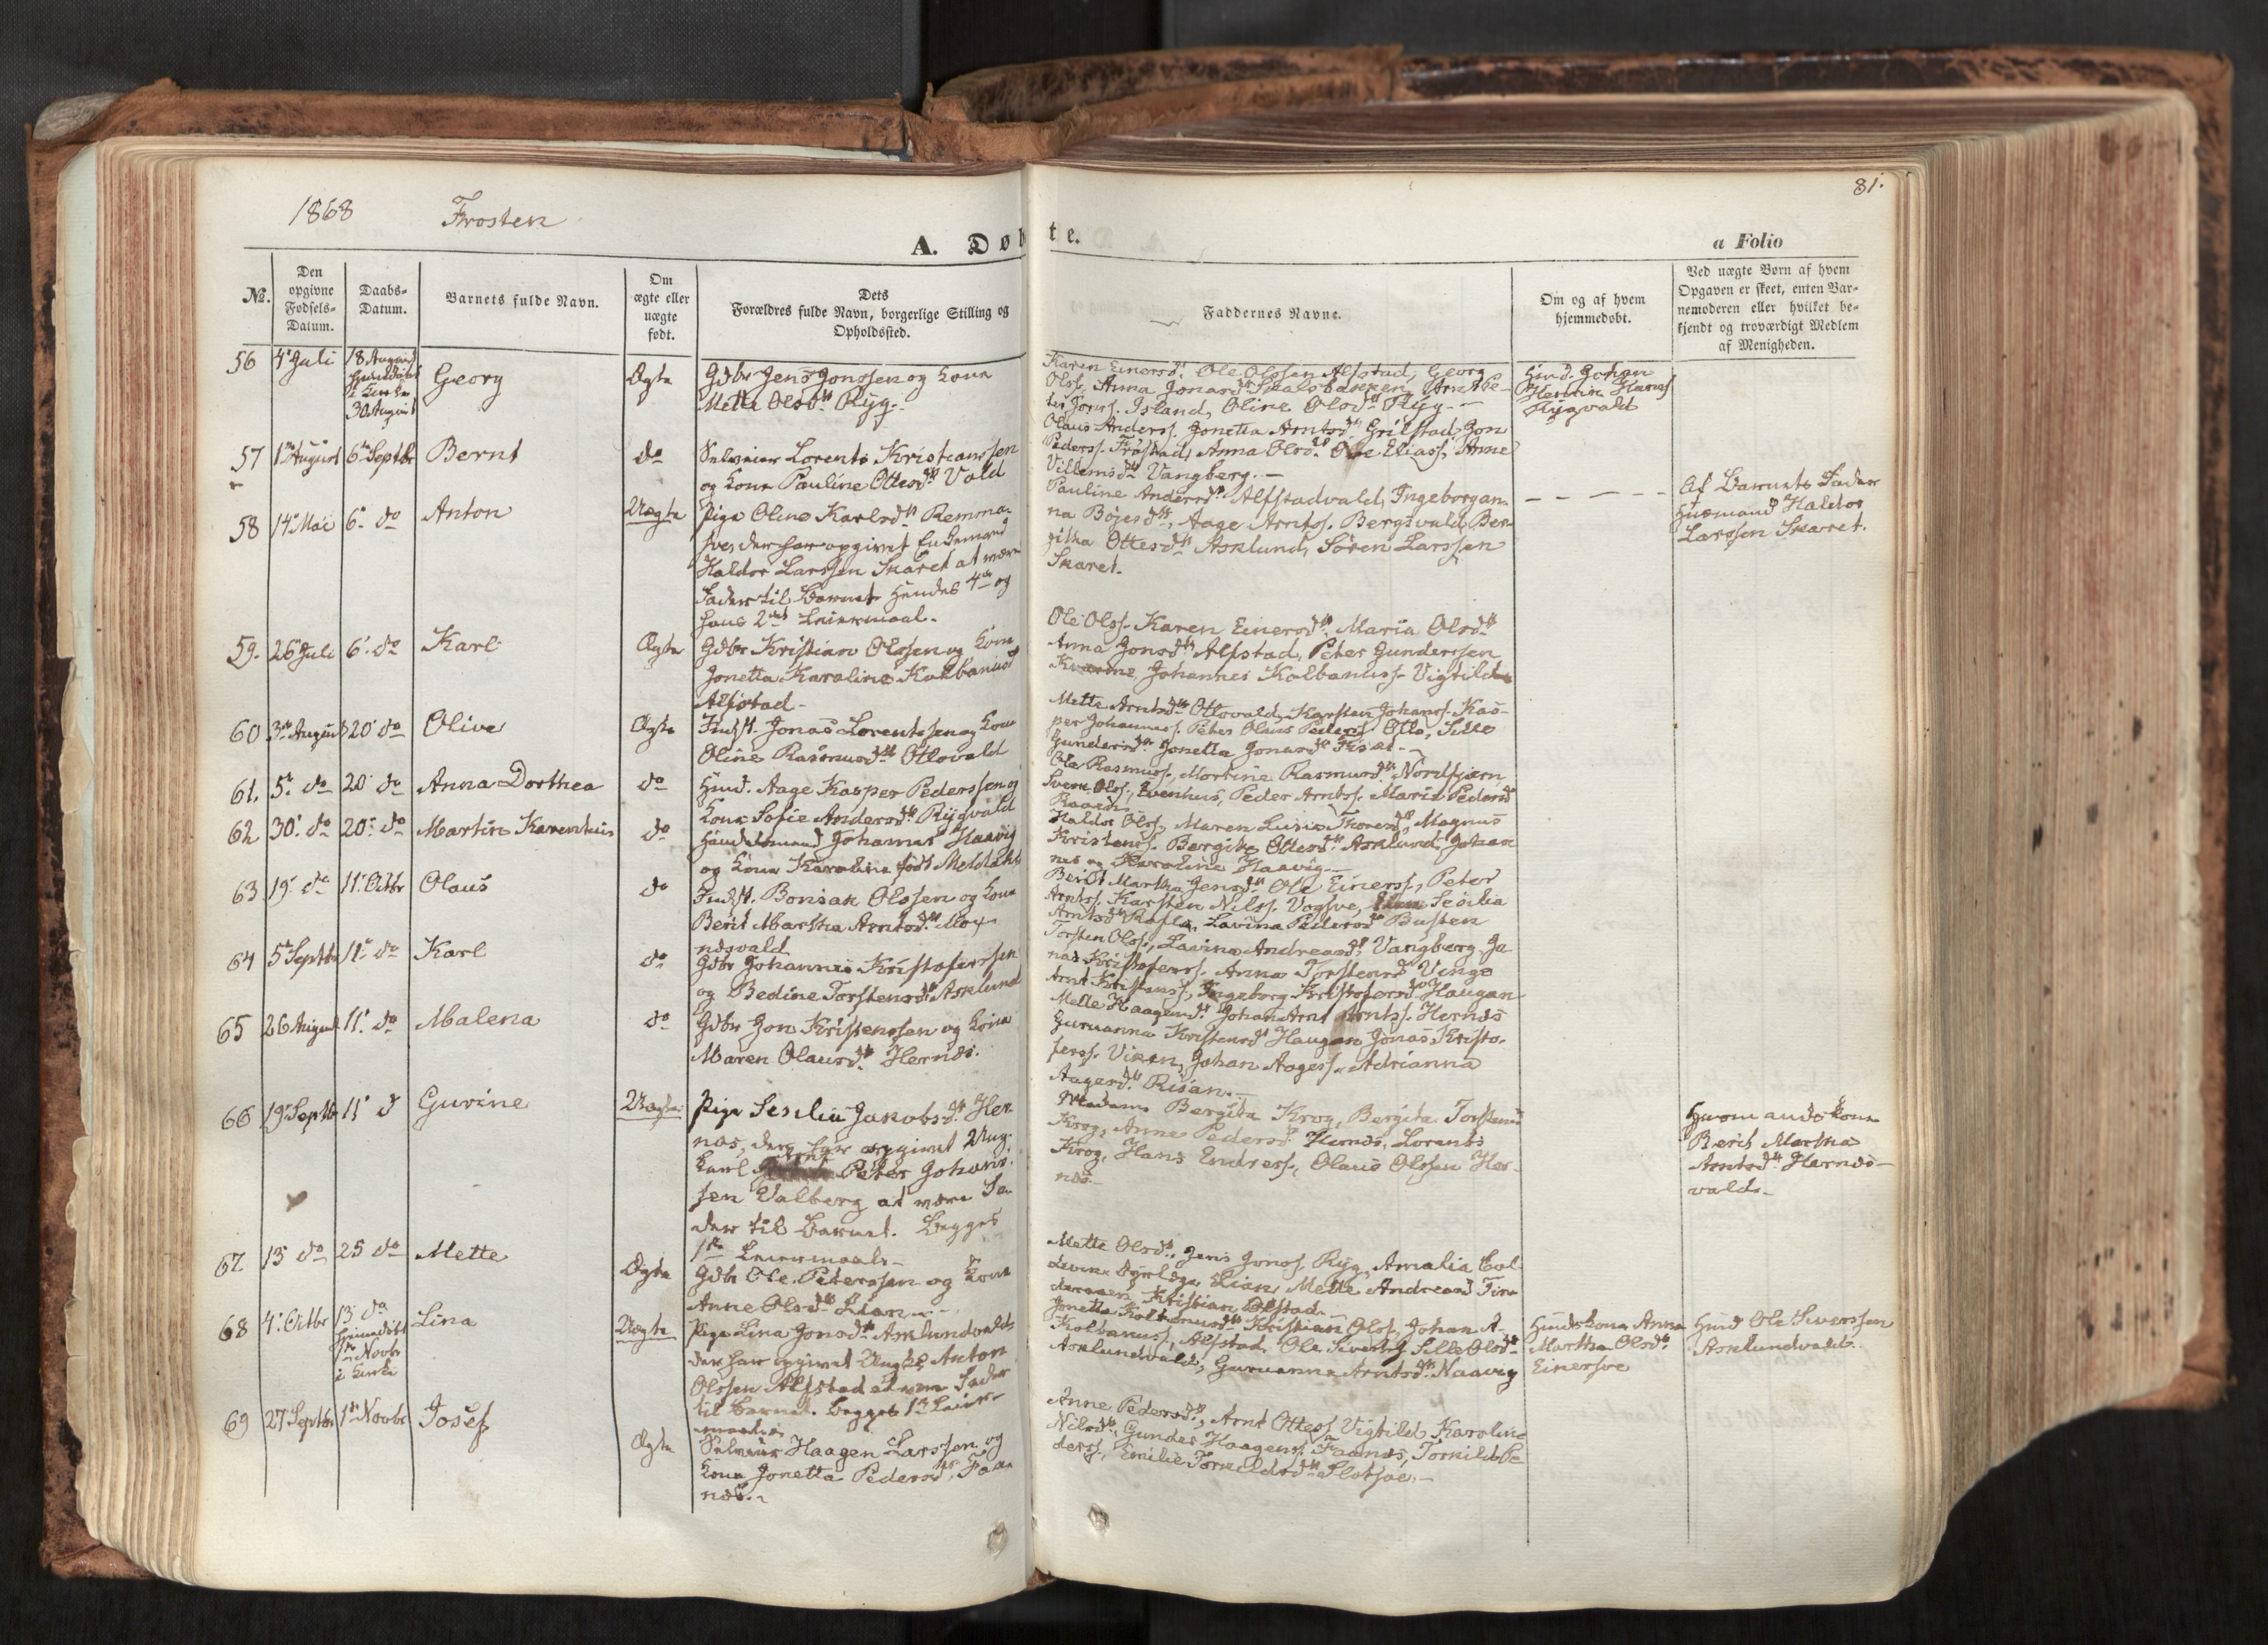 1868 Frosten
A. Døbte.
81.
a Folio
No.
Den opgivne Fødsels-Datum.
Daabs-Datum.
Barnets fulde Navn.
Om ægte eller uægte født.
Dets Forældres fulde Navn, borgerlige Stilling og Opholdssted.
Faddernes Navne.
Om og af hvem hjemmedøbt.
Ved uægte Børn af hvem Opgaven er skeet, enten Barnemoderen eller hvilket bekjendt og troværdigt Medlem af Menigheden.
56 4de Juli 18 August
i Kirke
30 August
Georg
Ægte
Gdbr Jens Jonssen og Kona
Mette Olsdtr Ryg.
Karen Einersdr. Ole Olssen Alfstad, Georg
Olss. Anna Jonasdtr
ter Jonss. Island, Oline Olsdtr Ryg.
Husd. Johan
Henrin Hanss
Rygvald
57 1ste August 6te Septbr Bernt do
Selveier Lorents Kristianssen
og Kona Pauline Ottesdtr Vold
Olaus Anderss. Jonetta Arntsdtr Grilstad, Jon
Pederss. Frøstad, Anna Olsdr. Ole Eliass, Anne
Villemsdtr Vangberg.
58 14de Mai 6te do Anton Uægte
Pige Oline Karlsdtr Remma-
sve, der har opgivet Enkemand
Haldor Larssen Skaret at være
Fader til Barnet Hendes 4de og
hans 2det Leiermaal.
Pauline Andersdtr Alfstadvald, Ingeborgan-
na Böjesdtr, Aage Arntss. Bergsvald, Ber-
githa Ottesdtr Asklund, Sören Larssen
Skaret.
Af Barnets Fader
Husmand Haldor
Larssen Skaret.
59. 26de Juli 6te do Karl Ægte
Gdbr Kristian Olssen og Kona
Jonetta Karoline Kolbanusd
Alfstad
Ole Olss. Karen Einersdtr. Maria Olsdtr
Anna Jonsdtr Alfstad, Peter Gunderssen
Kvarme, Johannes Kolbanuss. Vigtild
60 3die August 20de do Oliva Ægte
Indst. Jonas Lorentssen og Kona
Oline Rasmusdtr Otlovald
Mette Arntsdtr Otlovald, Karsten Johanss. Kas-
per Johanness. Peter Olaus Peders Otlo, Sille
Gundersdtr Jonetta Jonasdtr
61. 5te do 20de do Anna Dorthea do
Husd. Aage Kasper Pederssen og
Kona Sofie Andersdtr Rygvald
Ole Rasmuss., Martine Rasmusdtr Nordfjærn
Svern Olss, Evenhus, Peder Arntss. Marie Pedersd
62 30te do 20de do Martin Karenthius do
Handelsmand Johannes Haavig
og Kona Karoline født Meldahl
Haldor Olss, Maren Lusie Thoresdtr, Magnus
Kristens. Bergitte Ottesdtr Asklund, Johan
nes og Karoline Haavig
63 19de do 11te Octbr Olaus do
Indst. Bonsak Olssen og Kona
Berit Martha Arntsdtr Mox-
nesvald
Berit Martha Jensdtr Ole Einerss, Peter
Arntss. Karsten Nilss. Vogsve, Secilia
Arntsdtr Lavina Pedersdtr Busten
64 5te Septbr 11te do Karl do
Gdbr Johannes Kristoferssen
og Bedine Torstensdtr Asklund
Torsten Olss, Lavina Andreasdr. Vangberg Jo-
nas Kristoferss. Anna Torstensd Vinge
Arnt Kristens, Ingeborg Kristofersdtr Haugan
65 26 August 11te do Malena do
Gdbr Jon Kristenssen og Kona
Maren Olausdtr Hernæs.
Mette Haagensdr. Johan Arnt Arntss. Hernæs
Guruanna Kristensd Haugan, Jonas Kristo-
ferss. Viken, Johan Aagess. Adrianna
Aagesdtr Risan.
66 19de Septbr 11te d Guvine Uægte
Pige Sesilia Jakobsdtr Her-
næs, der har opgivet Ung-
karl Arnt Peter Johans-
sen Valberg at være Fa-
der til Barnet. Begges
1ste Leiermaal.
Madam Bergitta Krog, Bergitta Torstens
Krog, Anne Pedersd. Hernæs, Lorents
Krog, Hans Endress, Olaus Olssen Her-
næs
Husmandskona
Berit Martha
Arntsdtr Hernæs-
vald.
67. 13 do 25 do Mette Ægte
Gdbr Ole Peterssen og Kona
Anne Olsdtr Lian
Mette Olsd., Jens Jonss. Ryg, Amalia Col-
Lian, Mette Andreasd Tin-
Kristian Alfstad.
68 4de Octbr 13 do
1ste Novbr
i Kirke
Lina Uægte
Pige Lina Jonsdtr Asklundvald
der har opgivet Ungkl Anton
Olssen Alfstad at være Fader
til Barnet. Begges 1ste Leier-
maal.
Jonetta Kolbanusdtr Kristian Olss, Johan A-
Kolbanuss, Alfstad, Ole Sivertss Sille Olsdtr
Asklundvald, Guruanna Arntsdtr Naavig
Husdskona Anna
Martha Olsdtr
Einersve
Husd Ole Sivertssen
Asklundvald.
69 27 Septbr 1ste Novbr Josef Ægte
Selveier Haagen Larssen og
Kona Jonetta Pedersdtr. Faa-
næs.
Anne Pedersdtr., Arnt Ottess. Vigtild, Karoline
Nilsdtr, Gunder Haagens. Faanæs, Tomild Pe-
derss, Emilie Tomildsdtr